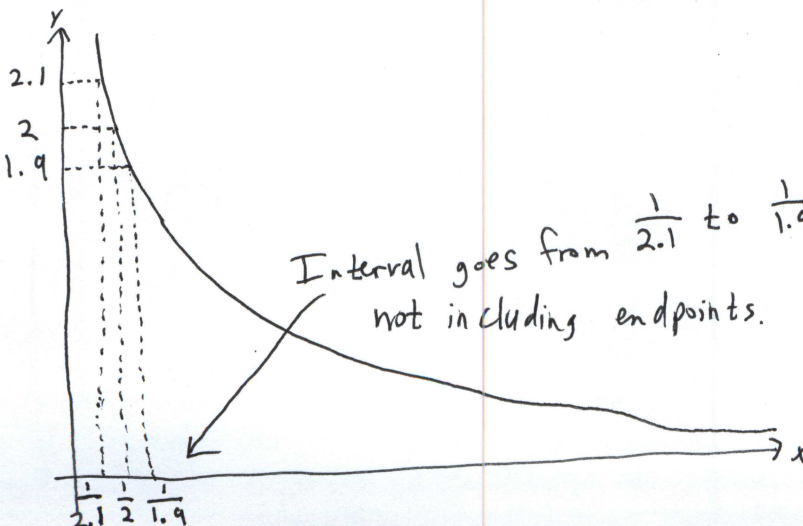 y
2.1
2
1.9
Interval goes from 1/2.1 to 1/1.9
not including endpoints.
x
1/2.1 1/2 1/1.9